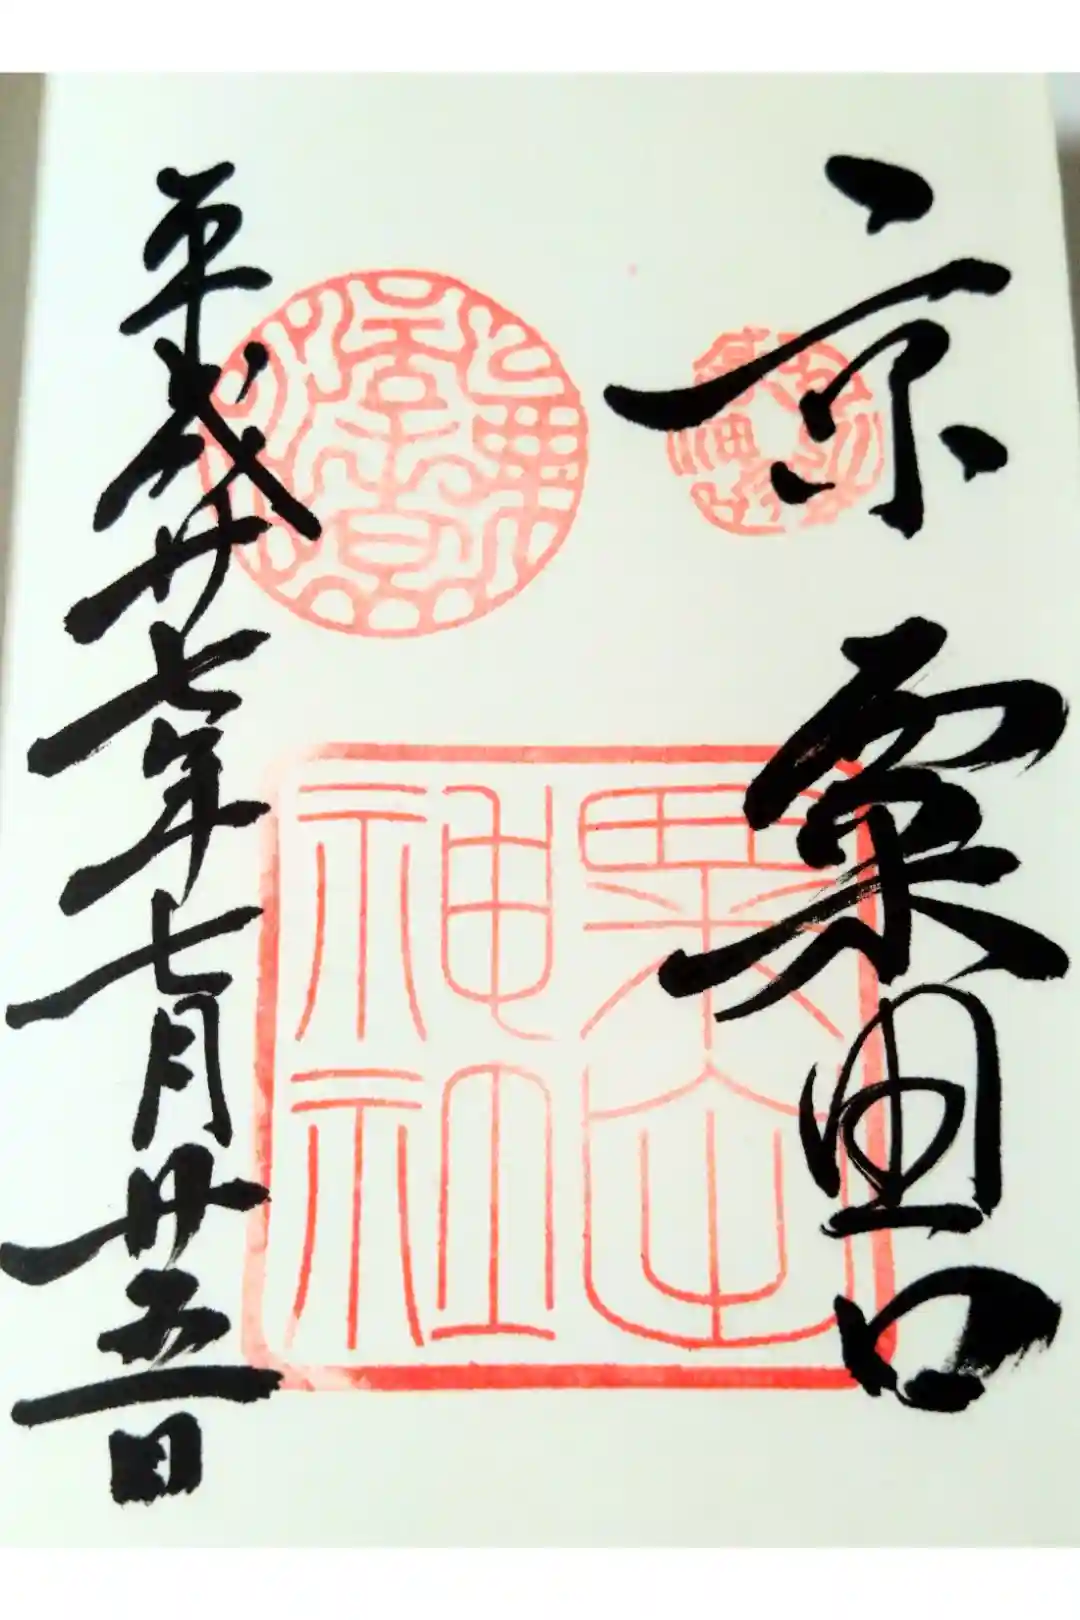 京 粟田口
粟田神社
平成廿七年七月廿五日